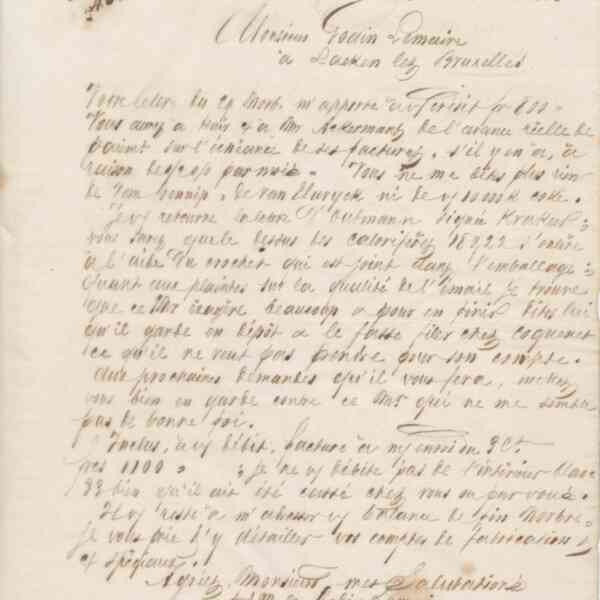 Monsieur Godin Lemaire
à Laeken lez Bruxelles
Votre lettre du 29 9bre m'apporte à v/ crédit fr 800 -
Vous avez à tenir à Mr Ackermans de l'avance réelle de
paiemt sur l'échéance de ses factures, s'il y en a, à
raison de par mois. Vous ne me dites plus rien
de Vem de Van ni de v/ coke.
Je v/ retourne la lettre signée
vous savez que le dessus des calorifères s'enlève
à l'aide du crochet qui est joint dans l'emballage;
Quant aux plaintes sur la qualité de l'émail je trouve
que ce Mr exagère beaucoup & pour en finir dites lui
qu'il garde en dépôt & le fasse filer chez Coquenet
ce qu'il ne veut pas prendre pour son compte.
Aux prochaines demandes qu'il vous fera, mettez
vous bien en garde contre ce Mr qui ne me semble
pas de bonne foi.
Inclus, à v/ débit, facture à m/ envoi du 3 Ct.
fres 1100 je ne v/ débite pas de l'intérieur
33 bien qu'il ait été cassé chez vous ou par vous.
Il v/ reste à m'adresser v/ balance de fin
je vous prie d'y détailler vos comptes de fabrication
et spéciaux.
Agréez, Monsieur, mes Salutations